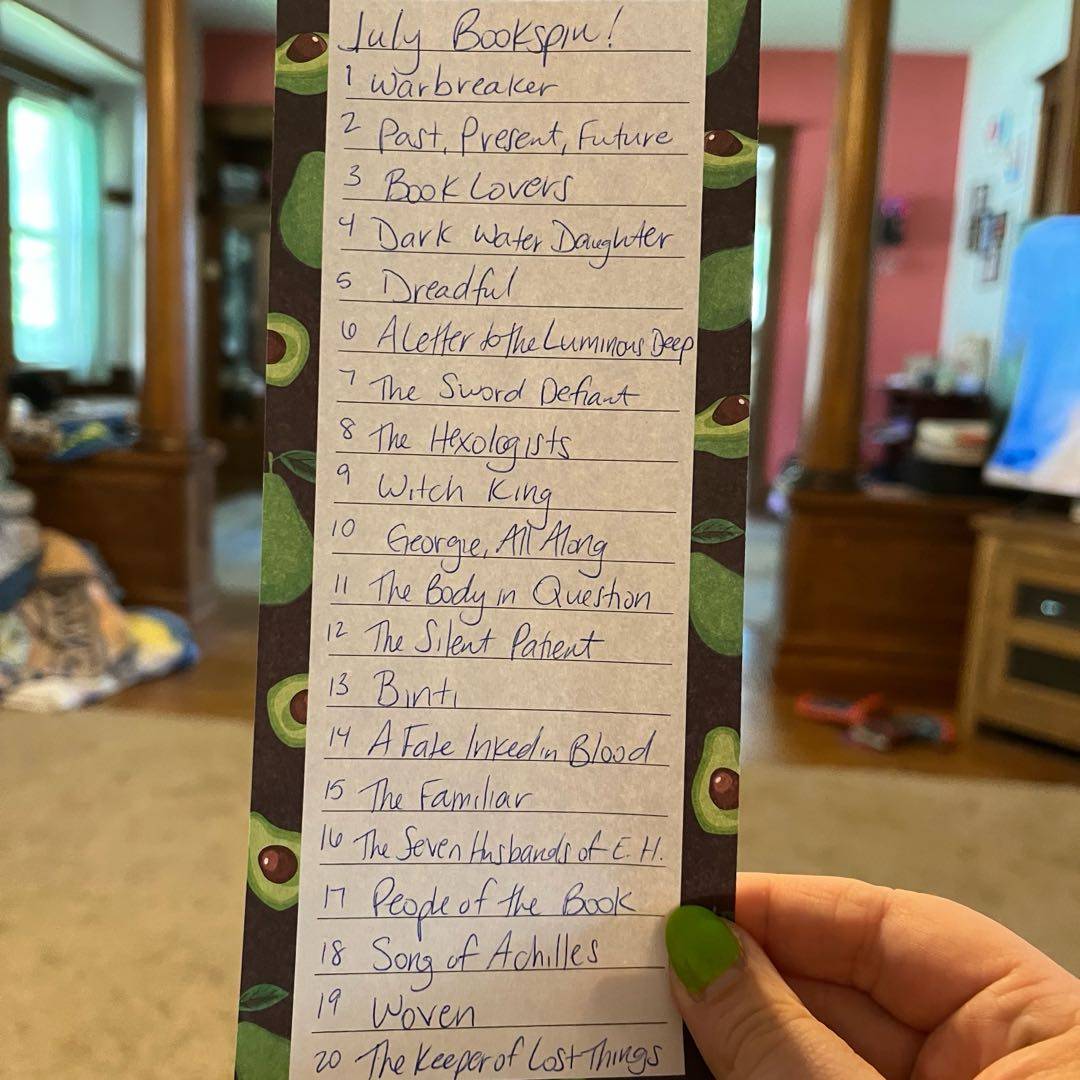 July Bookspin!
1 Warbreaker
2 Past, Present, Future
3 Book Lovers
4 Dark Water Daughter
5 Dreadful
6 A Letter to the Luminous Deep
7 The Sword Defiant
8 The Hexologists
9 Witch King
10 Georgie, All Along
11 The Body in Question
12 The Silent Patient
13 Binti
14 A Fate Inked in Blood
15 The Familiar
16 The Seven Husbands of E.H.
17 People of the Book
18 Song of Achilles
19 Woven
20 The Keeper of Lost Things